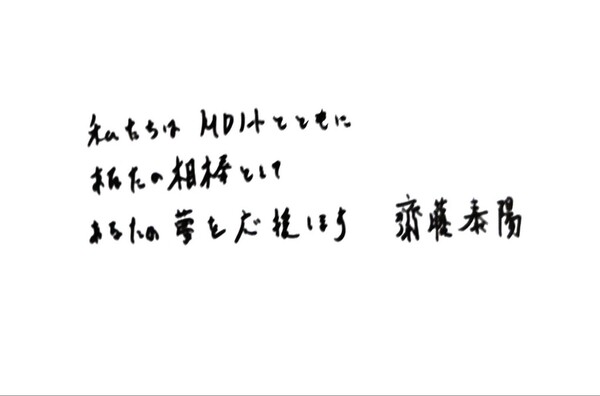 私たちは MDIトとともに
あなたの相棒として
あなたの夢を応援します 齋藤泰陽